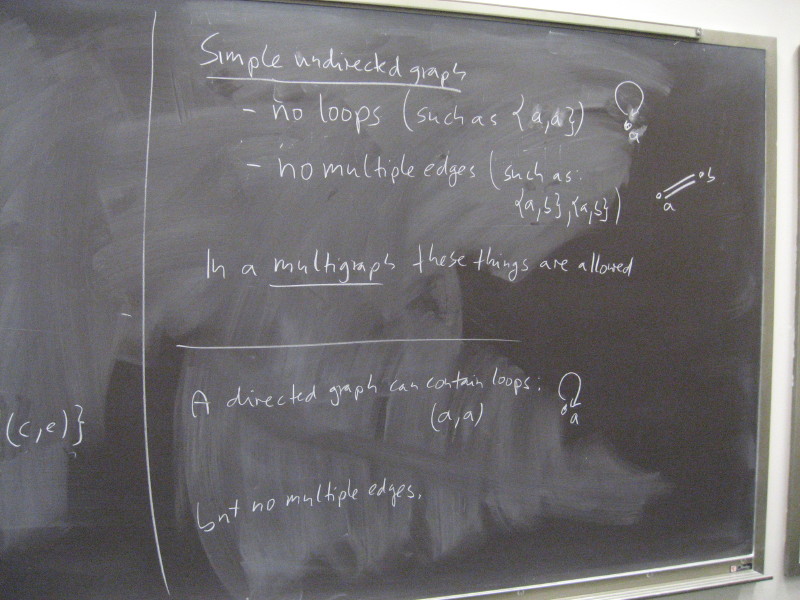 Simple undirected graph
- no loops (such as {a,a})
a
- no multiple edges (such as:
{a,b},{a,b})
a b
In a multigraph these things are allowed
A directed graph can contain loops:
(a,a)
a
but no multiple edges.
(c,e)}